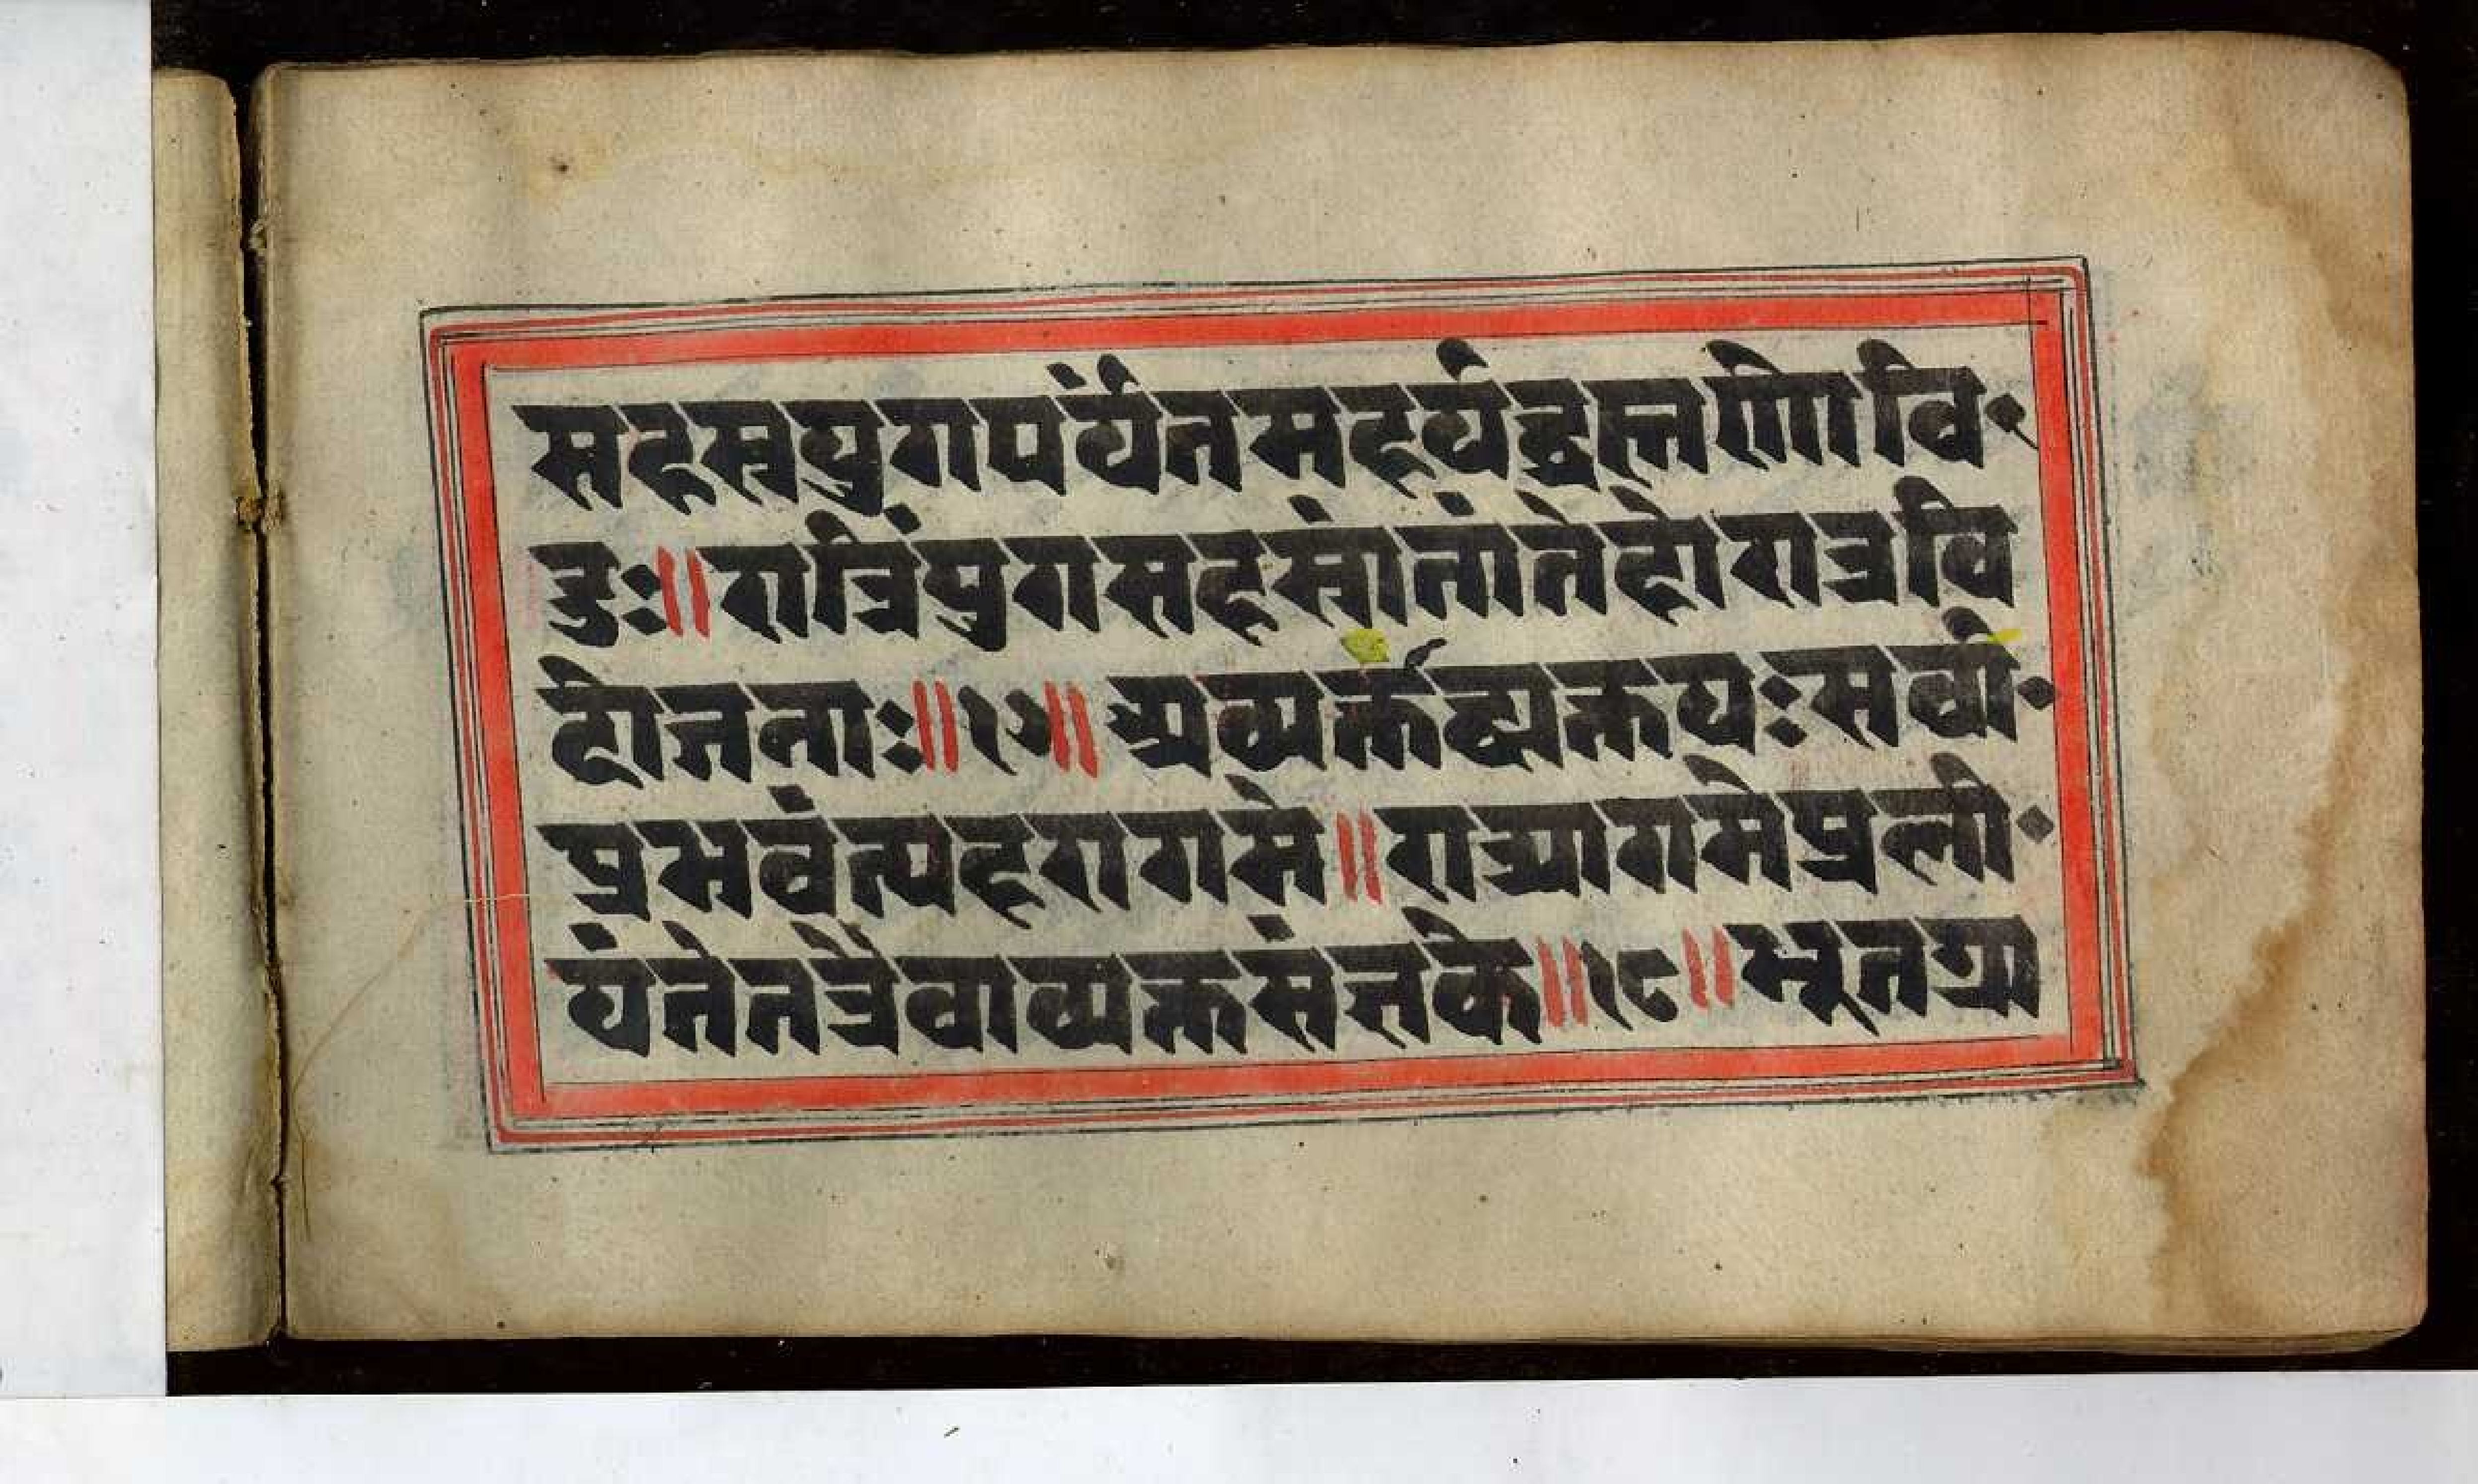 सहस्रयुगपर्यंतमहर्यद्ब्रह्मणोवि
दुः॥रात्रिंयुगसहस्रांतांतेहोरात्रवि
दोजनाः॥१७॥अव्यक्ताद्व्यक्तयःसर्वाः
प्रभवंत्यहरागमे॥रात्र्यागमेप्रली
यंतेतत्रैवाव्यक्तसंज्ञके॥१८॥भूतग्रा